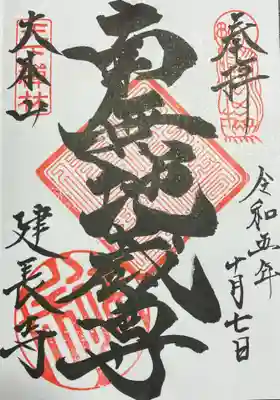 奉拝
令和五年
十月七日
南無地蔵尊
大本山
建長寺